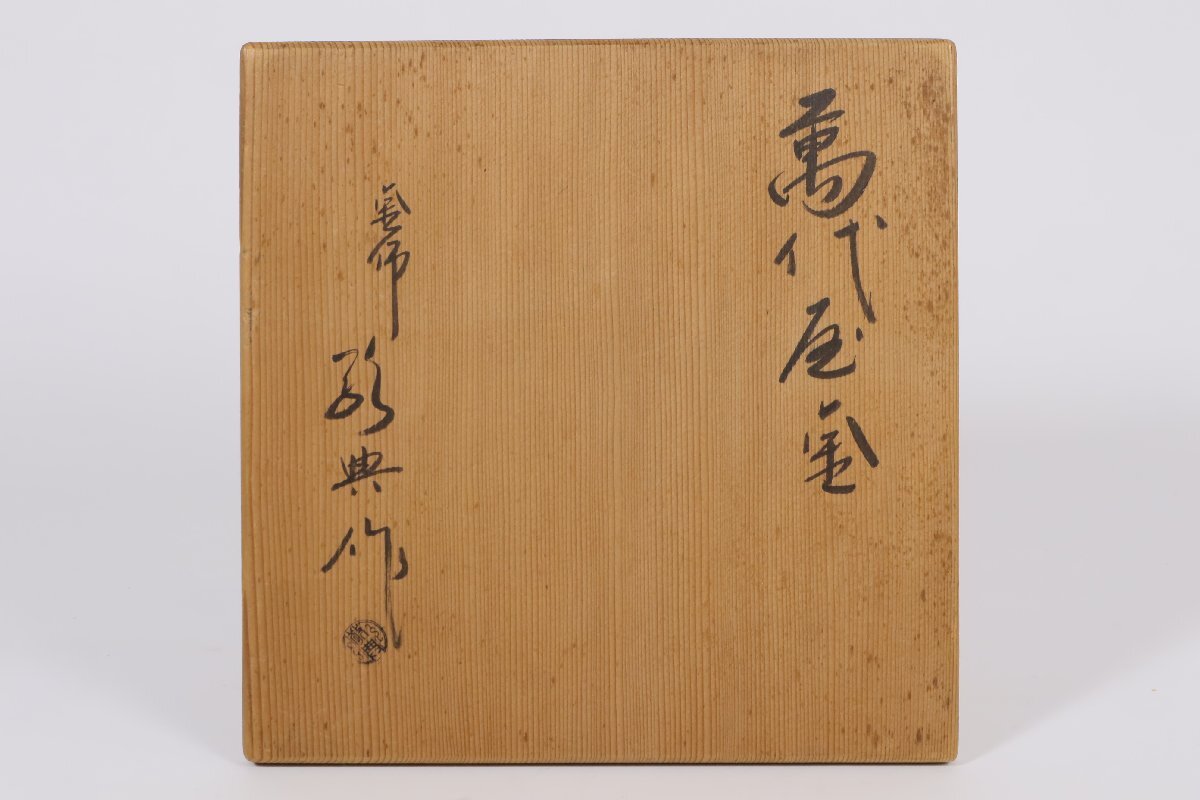 萬代屋釜
釜師 敬典作